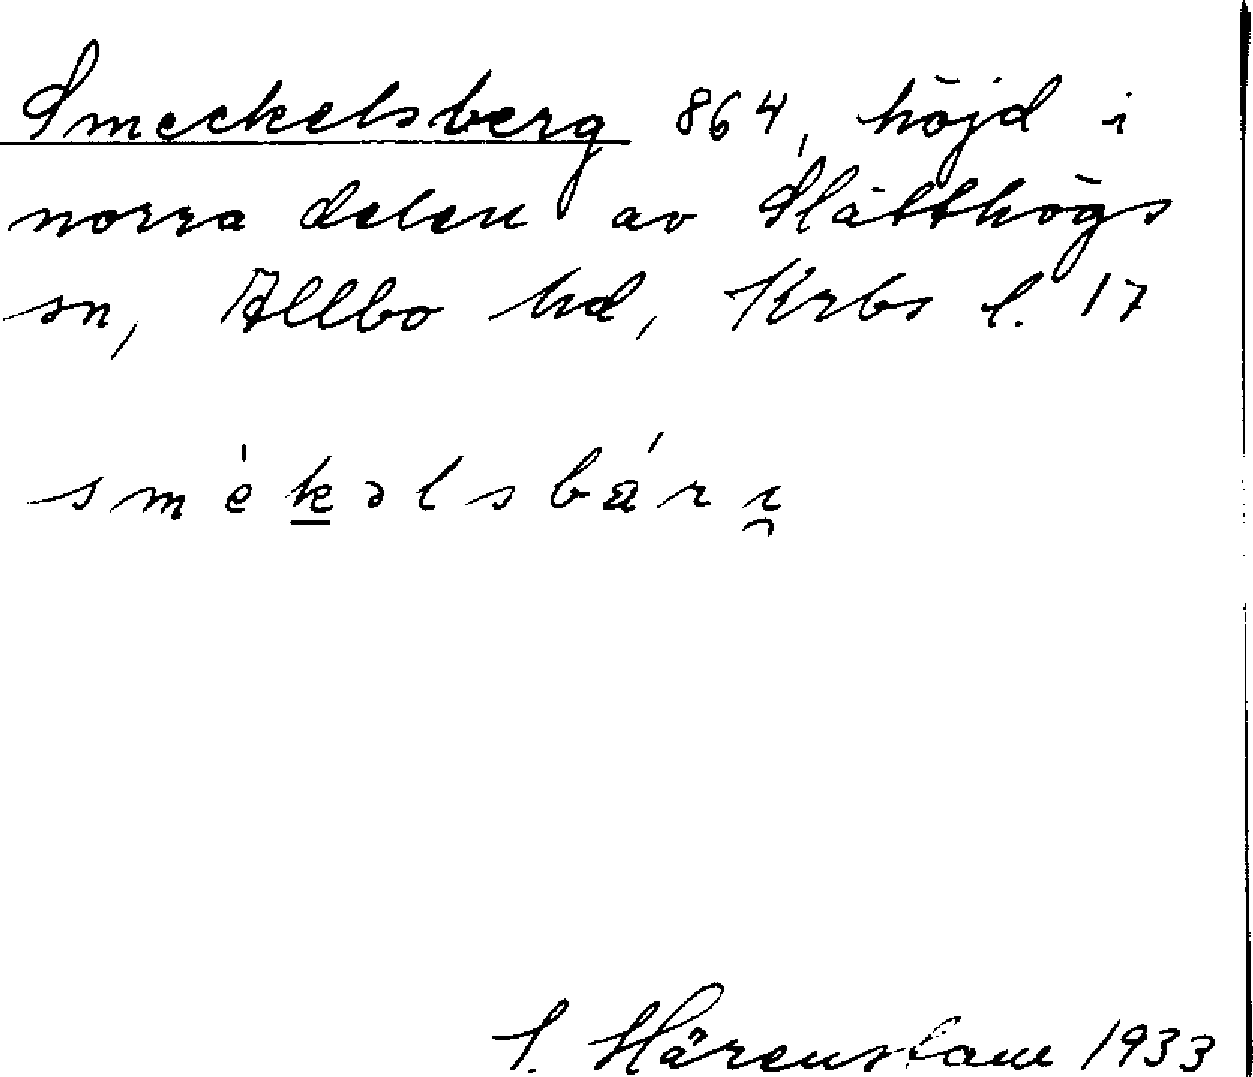 Smeckelsberg 864, höjd i
norra delen av Slätthögs
sn, Allbo hd, Krbs l. 17
smèkəlsbár
Härenstam 1933